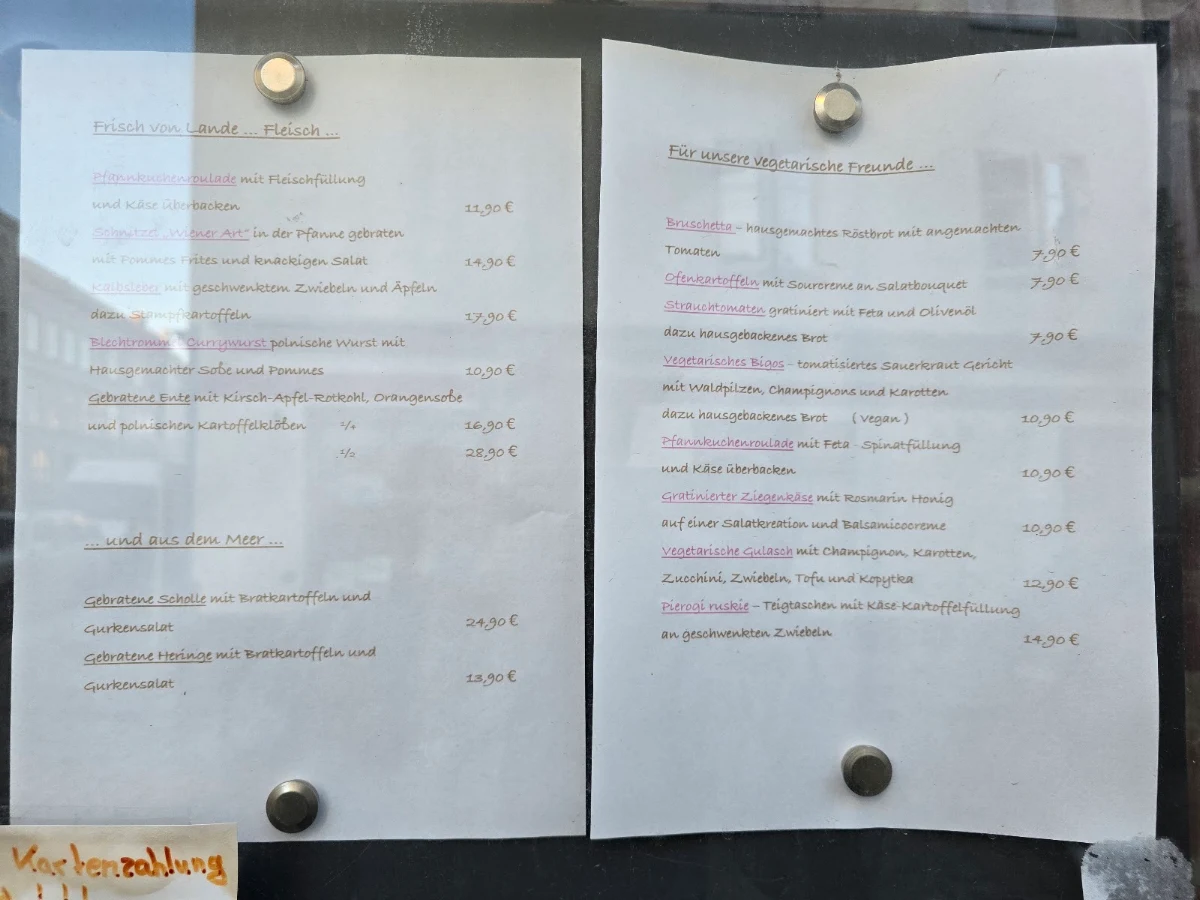 Frisch von Lande ... Fleisch ...
Pfannkuchenroulade mit Fleischfüllung
und Käse überbacken 11,90 €
Schnitzel „Wiener Art“ in der Pfanne gebraten
mit Pommes Frites und knackigen Salat 14,90 €
Kalbsleber mit geschwenktem Zwiebeln und Äpfeln
dazu Stampfkartoffeln 17,90 €
Blechtrommel Currywurst polnische Wurst mit
Hausgemachter Soße und Pommes 10,90 €
Gebratene Ente mit Kirsch-Apfel-Rotkohl, Orangensoße
und polnischen Kartoffelklößen 1/4 16,90 €
1/2 28,90 €
... und aus dem Meer ...
Gebratene Scholle mit Bratkartoffeln und
Gurkensalat 24,90 €
Gebratene Heringe mit Bratkartoffeln und
Gurkensalat 13,90 €
Für unsere vegetarische Freunde ...
Bruschetta – hausgemachtes Röstbrot mit angemachten
Tomaten 7,90 €
Ofenkartoffeln mit Sourcreme an Salatbouquet 7,90 €
Strauchtomaten gratiniert mit Feta und Olivenöl
dazu hausgebackenes Brot 7,90 €
Vegetarisches Bigos – tomatisiertes Sauerkraut Gericht
mit Waldpilzen, Champignons und Karotten
dazu hausgebackenes Brot ( vegan ) 10,90 €
Pfannkuchenroulade mit Feta - Spinatfüllung
und Käse überbacken 10,90 €
Gratinierter Ziegenkäse mit Rosmarin Honig
auf einer Salatkreation und Balsamicocreme 10,90 €
Vegetarische Gulasch mit Champignon, Karotten,
Zucchini, Zwiebeln, Tofu und Kopytka 12,90 €
Pierogi ruskie – Teigtaschen mit Käse-Kartoffelfüllung
an geschwenkten Zwiebeln 14,90 €
Kartenzahlung